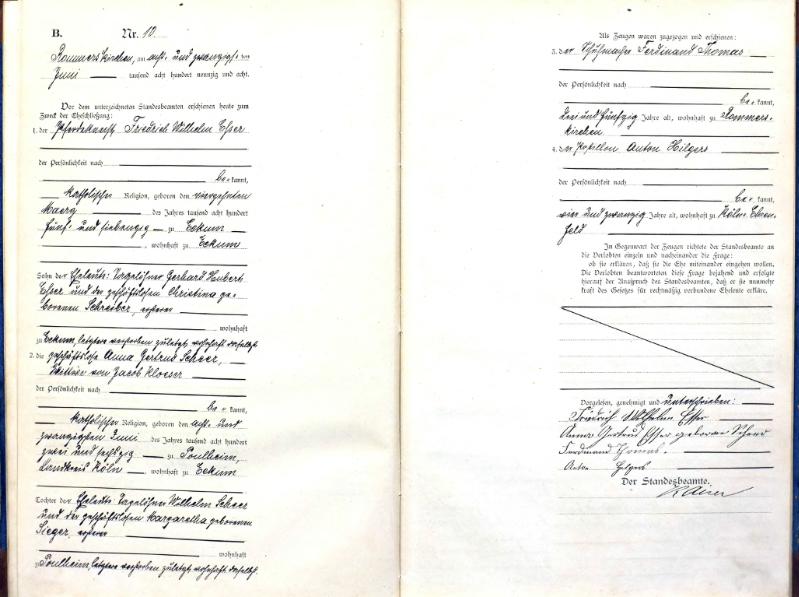 B. Nr. 10.
Rommerskirchen, am acht- und zwanzigsten
Juni tausend acht hundert neunzig und acht.
Vor dem unterzeichneten Standesbeamten erschienen heute zum
Zweck der Eheschließung:
1. der Pferdeknecht Friedrich Wilhelm Esser
der Persönlichkeit nach
be- kannt,
katholischer Religion, geboren den vierzehnten
Maerz des Jahres tausend acht hundert
fünf- und siebenzig zu Eckum
, wohnhaft zu Eckum
Sohn der Eheleute: Tagelöhner Gerhard Hubert
Esser und der geschäftslosen Christina ge-
borenen Schreiber, ersterer
wohnhaft
zu Eckum, letztere verstorben zuletzt wohnhaft daselbst
2. die geschäftslose Anna Gertrud Scheer,
Wittwe von Jacob Kloeser
der Persönlichkeit nach
be- kannt,
katholischer Religion, geboren den acht- und
zwanzigsten Juni des Jahres tausend acht hundert
zwei und sechszig zu Poulheim,
Landkreis Köln wohnhaft zu Eckum
Tochter der Eheleute: Tagelöhner Wilhelm Scheer
und der geschäftslosen Margaretha geborenen
Sieger, ersterer
wohnhaft
zu Poulheim, letztere verstorben zuletzt wohnhaft daselbst.
Als Zeugen waren zugezogen und erschienen:
3. der Schuhmacher Ferdinand Thomas
der Persönlichkeit nach
be- kannt,
drei und fünfzig Jahre alt, wohnhaft zu Rommers-
kirchen
4. der Postillon Anton Hilgers
der Persönlichkeit nach
be- kannt,
vier und zwanzig Jahre alt, wohnhaft zu Köln-Ehren-
feld
In Gegenwart der Zeugen richtete der Standesbeamte an
die Verlobten einzeln und nacheinander die Frage:
ob sie erklären, daß sie die Ehe miteinander eingehen wollen.
Die Verlobten beantworteten diese Frage bejahend und erfolgte
hierauf der Ausspruch des Standesbeamten, daß er sie nunmehr
kraft des Gesetzes für rechtmäßig verbundene Eheleute erkläre.
Vorgelesen, genehmigt und unterschrieben:
Friedrich Wilhelm Esser
Anna Gertrud Esser geborene Scheer
Ferdinand Thomas.
Anton Hilgers
Der Standesbeamte.